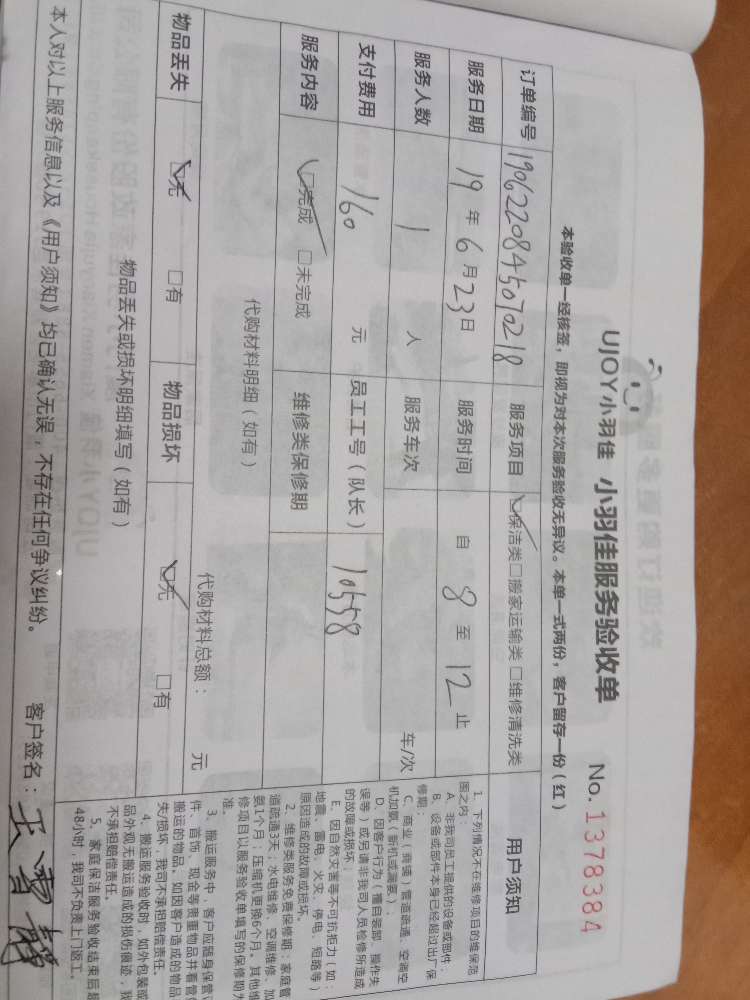 UJOY小羽佳 小羽佳服务验收单 No. 1378384
本验收单一经核签，即视为对本次服务验收无异议。本单一式两份，客户留存一份（红）
订单编号 1906220845070218 服务项目 ☑保洁类 □搬家运输类 □维修清洗类
服务日期 19 年 6 月 23 日 服务时间 自 8 至 12 止
服务人数 1 人 服务车次 车/次
支付费用 160 元 员工工号（队长） 10558
服务内容 ☑完成 □未完成 维修类保修期
代购材料明细（如有） 代购材料总额： 元
物品丢失 ☑无 □有 物品损坏 ☑无 □有
物品丢失或损坏明细填写（如有）
本人对以上服务信息以及《用户须知》均已确认无误，不存在任何争议纠纷。 客户签名：
用户须知
1. 下列情况不在维修项目的维保范
围之内：
A、非我司员工提供的设备或部件；
B、设备或部件本身已经超过出厂保
修期；
C、商业（商铺）管道疏通、空调空
机加氨（新机或漏氨）；
D、因客户行为（擅自装卸、操作失
误等）或另请非我司人员检修所造成
的故障或损坏；
E、因自然灾害等不可抗拒力（如：
地震、雷电、火灾、停电、短路等）
原因造成的故障或损坏。
2、维修类服务免费保修期：家庭管
道疏通3天；水电维修、空调维修、加
氨1个月；压缩机更换6个月。其他维
修项目以服务验收单填写的保修期为
准。
3、搬运服务中，客户应随身保管
件、首饰、现金等贵重物品并看管
搬运的物品。如因客户造成的物品
失/损坏，我司不承担赔偿责任。
4、搬运服务验收时，如外包装或
品外观无搬运造成的损伤痕迹，我
不承担赔偿责任。
5、家庭保洁服务验收结束后超
48小时，我司不负责上门返工。